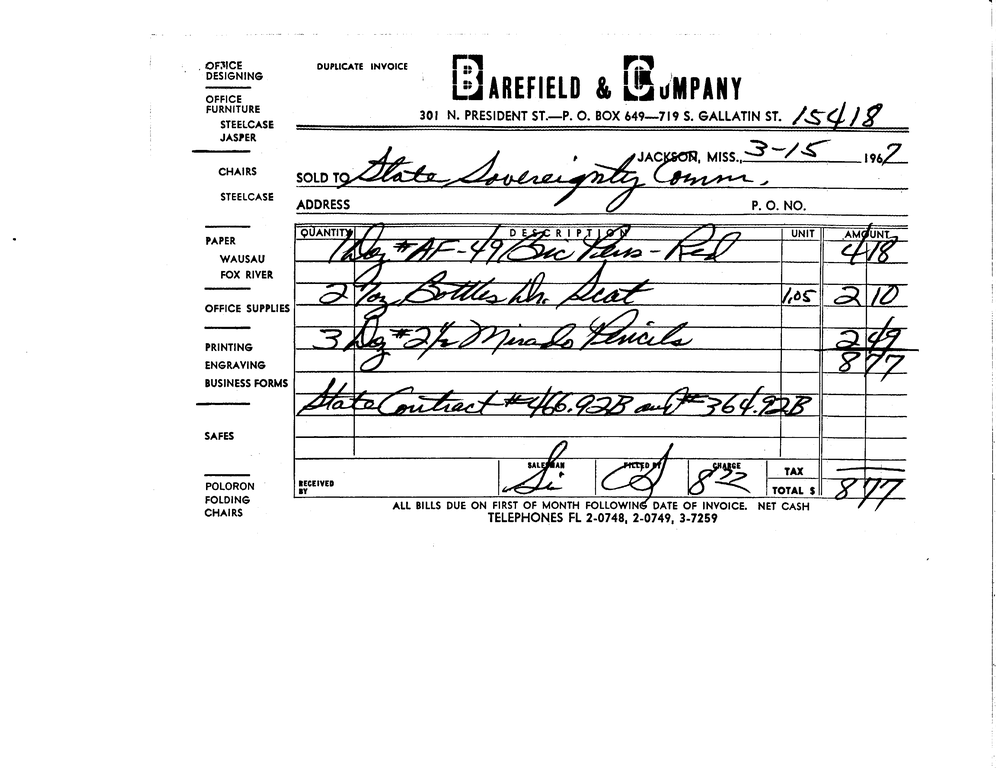 OFFICE
DESIGNING
OFFICE
FURNITURE
STEELCASE
JASPER
CHAIRS
STEELCASE
PAPER
WAUSAU
FOX RIVER
OFFICE SUPPLIES
PRINTING
ENGRAVING
BUSINESS FORMS
SAFES
POLORON
FOLDING
CHAIRS
DUPLICATE INVOICE
BAREFIELD & COMPANY
301 N. PRESIDENT ST.—P. O. BOX 649—719 S. GALLATIN ST. 15418
JACKSON, MISS., 3-15 1967
SOLD TO State Sovereignty Comm.
ADDRESS P. O. NO.
QUANTITY DESCRIPTION UNIT AMOUNT
1 Doz # AF-49 Bic Pens - Red 4 18
2 7oz Bottles Dr. Scat 1.05 2 10
3 Doz #2½ Mirado Pencils 2 49
8 77
State Contract #466.92B and #364.92B
RECEIVED BY SALESMAN Si FILLED BY CHARGE 8 77 TAX
TOTAL $ 8 77
ALL BILLS DUE ON FIRST OF MONTH FOLLOWING DATE OF INVOICE. NET CASH
TELEPHONES FL 2-0748, 2-0749, 3-7259